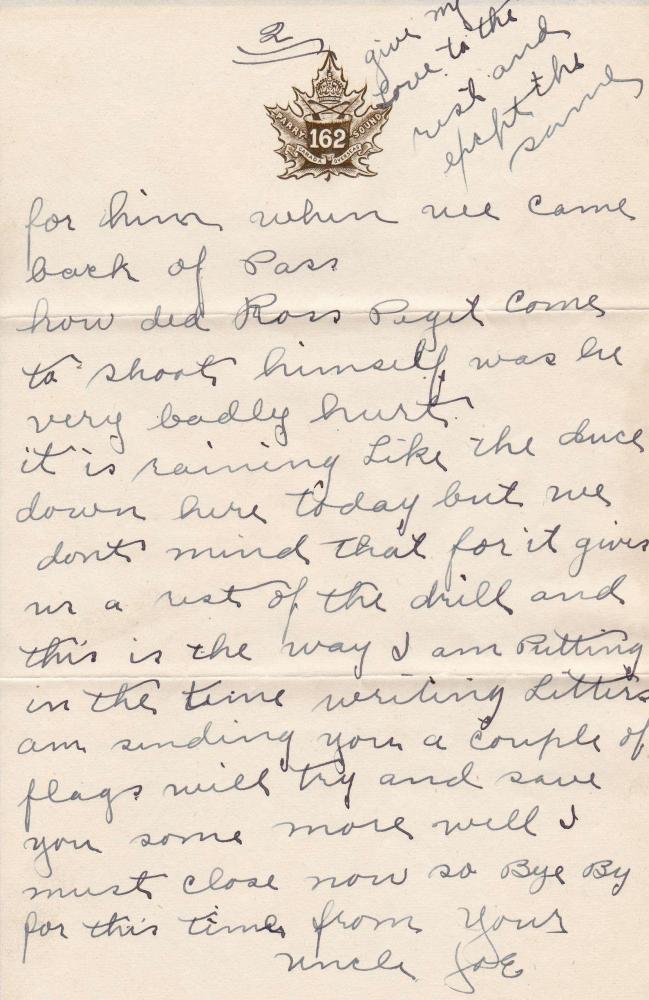 2
give my
love to the
rest and
epcpt the
same
PARRY SOUND
162
CANADA OVERSEAS
for him when we came
back of Pass
how did Ross Paget come
to shoot himself was he
very badly hurt.
it is raining Like the duce
down here today but we
dont mind that for it gives
us a rest of the drill and
this is the way I am Putting
in the time writing Letters
am sending you a couple of
flags will try and save
you some more well I
must close now so Bye By
for this time from Your
uncle Joe